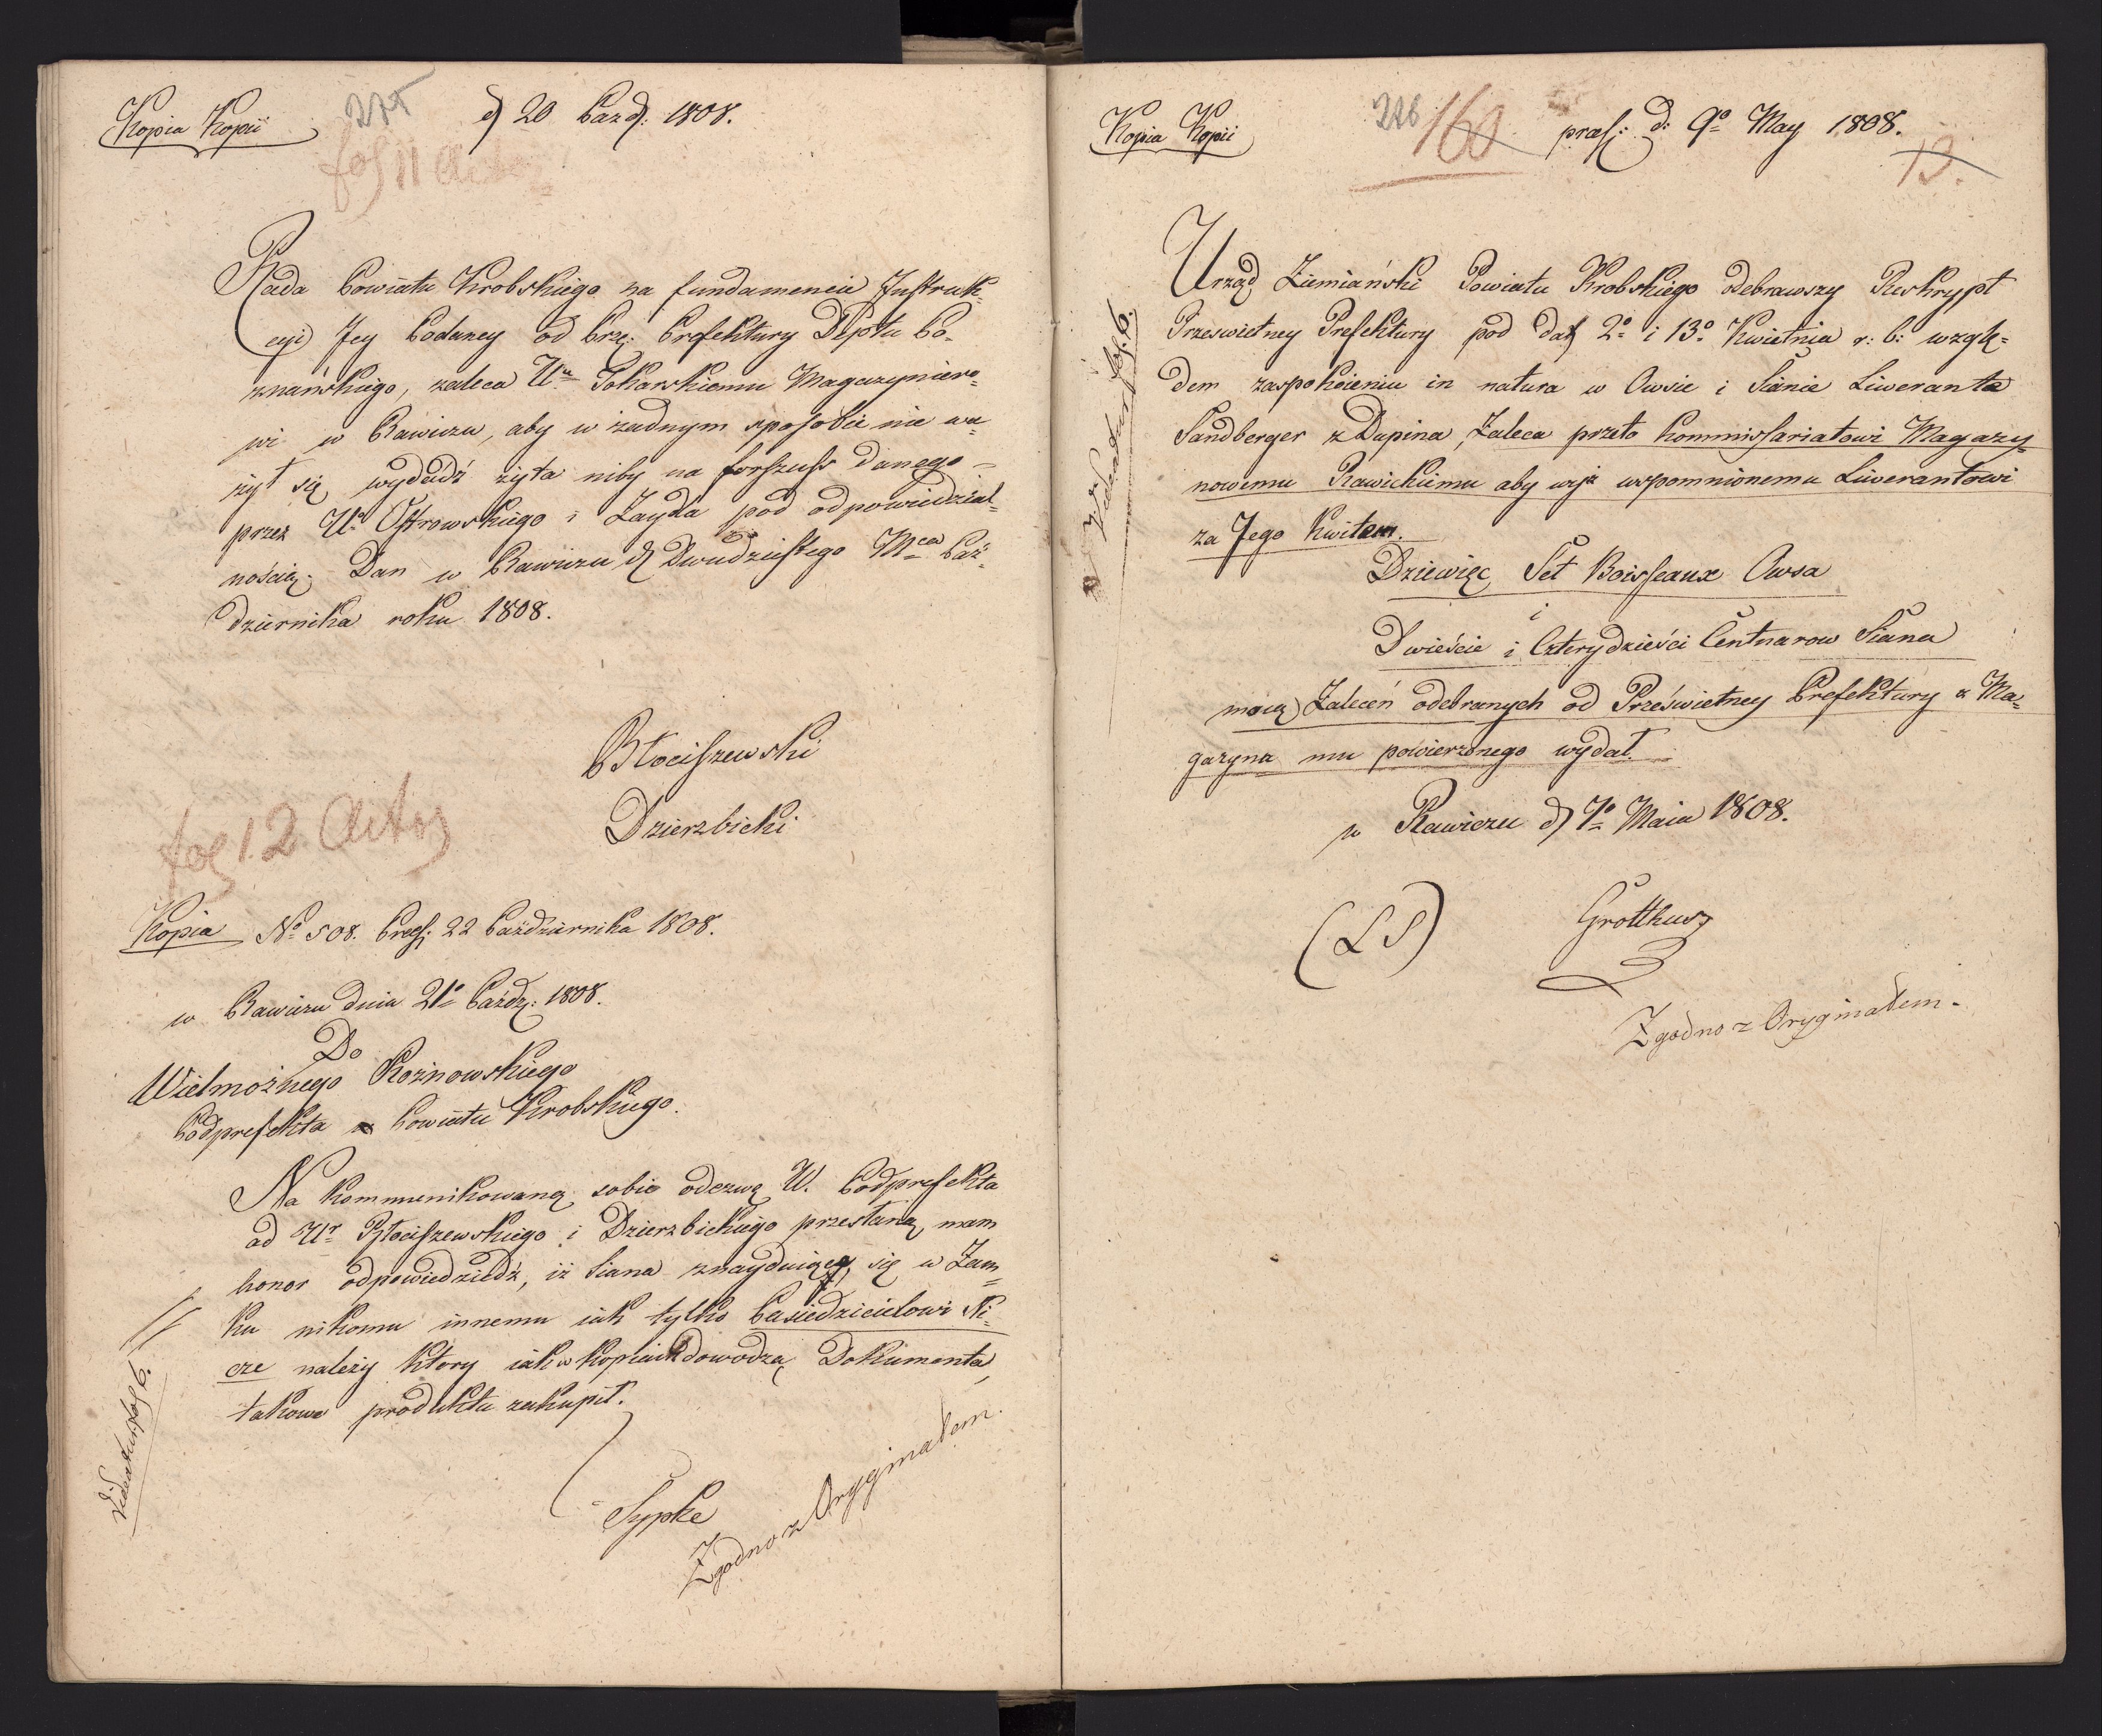 Kopia Kopii
275
d 20 Pazd: 1808.
fol 11 Actor
Rada Powiatu Krobskiego na fundamencie Instruk=
cyi Jey Podaney od Prz: Prefektury Dptu Po=
znańskiego, zaleca Ur Tokarskiemu Magazyniero=
wi w Rawiczu, aby w żadnym sposobie nie wa=
żył się wydadź żyta niby na forszuss danego
przez Ur Ostrowskiego i Zayda pod odpowiedzial=
nością. Dan w Rawiczu d Dwudziestego Mca Paź=
dziernika roku 1808.
Błociszewski
Dzierzbicki
fol 12 Actor
Kopia No 508. Pres: 22 Października 1808.
w Rawiczu dnia 21o Paźdz: 1808.
Do
Wielmożnego Rożnowskiego
Podprefekta Powiatu Krobskiego.
Na kommunikowaną sobie odezwę W. Podprefekta
od Ur Błociszewskiego i Dzierzbickiego przesłaną, mam
honor odpowiedzieć, iż Siana znayduiące się w Zam=
ku nikomu innemu iak tylko Posiedzicielowi Ni=
cze należy ktory iak w kopiach dowodzą Dokumenta,
takowe produkta zakupił.
Sypke
Zgodno z Oryginałem.
Videatur fol 6.
Kopia Kopii
226
160
præs: d: 9o May 1808.
13.
Videatur fol. 6.
Urząd Ziemiański Powiatu Krobskiego odebrawszy Reskrypt
Przeswietney Prefektury pod dat 2o i 13o Kwietnia r: b: wzglę=
dem zaspokoieniu in natura w Owsie i Sianie Liweranta
Sandberger z Dupina, Zaleca przeto Kommissariatowi Magazy=
nowemu Rawickiemu aby wyż wspomnionemu Liwerantowi
za Jego Kwitem.
Dziewięć Set Boisseaux Owsa
i
Dwieście i Czterydzieści Centnarow Siana
mocą Zaleceń odebranych od Prześwietney Prefektury z Ma=
gazyna mu powierzonego wydał.
w Rawiczu d 7o Maia 1808.
(LS)
Grotthus
Zgodno z Oryginałem.